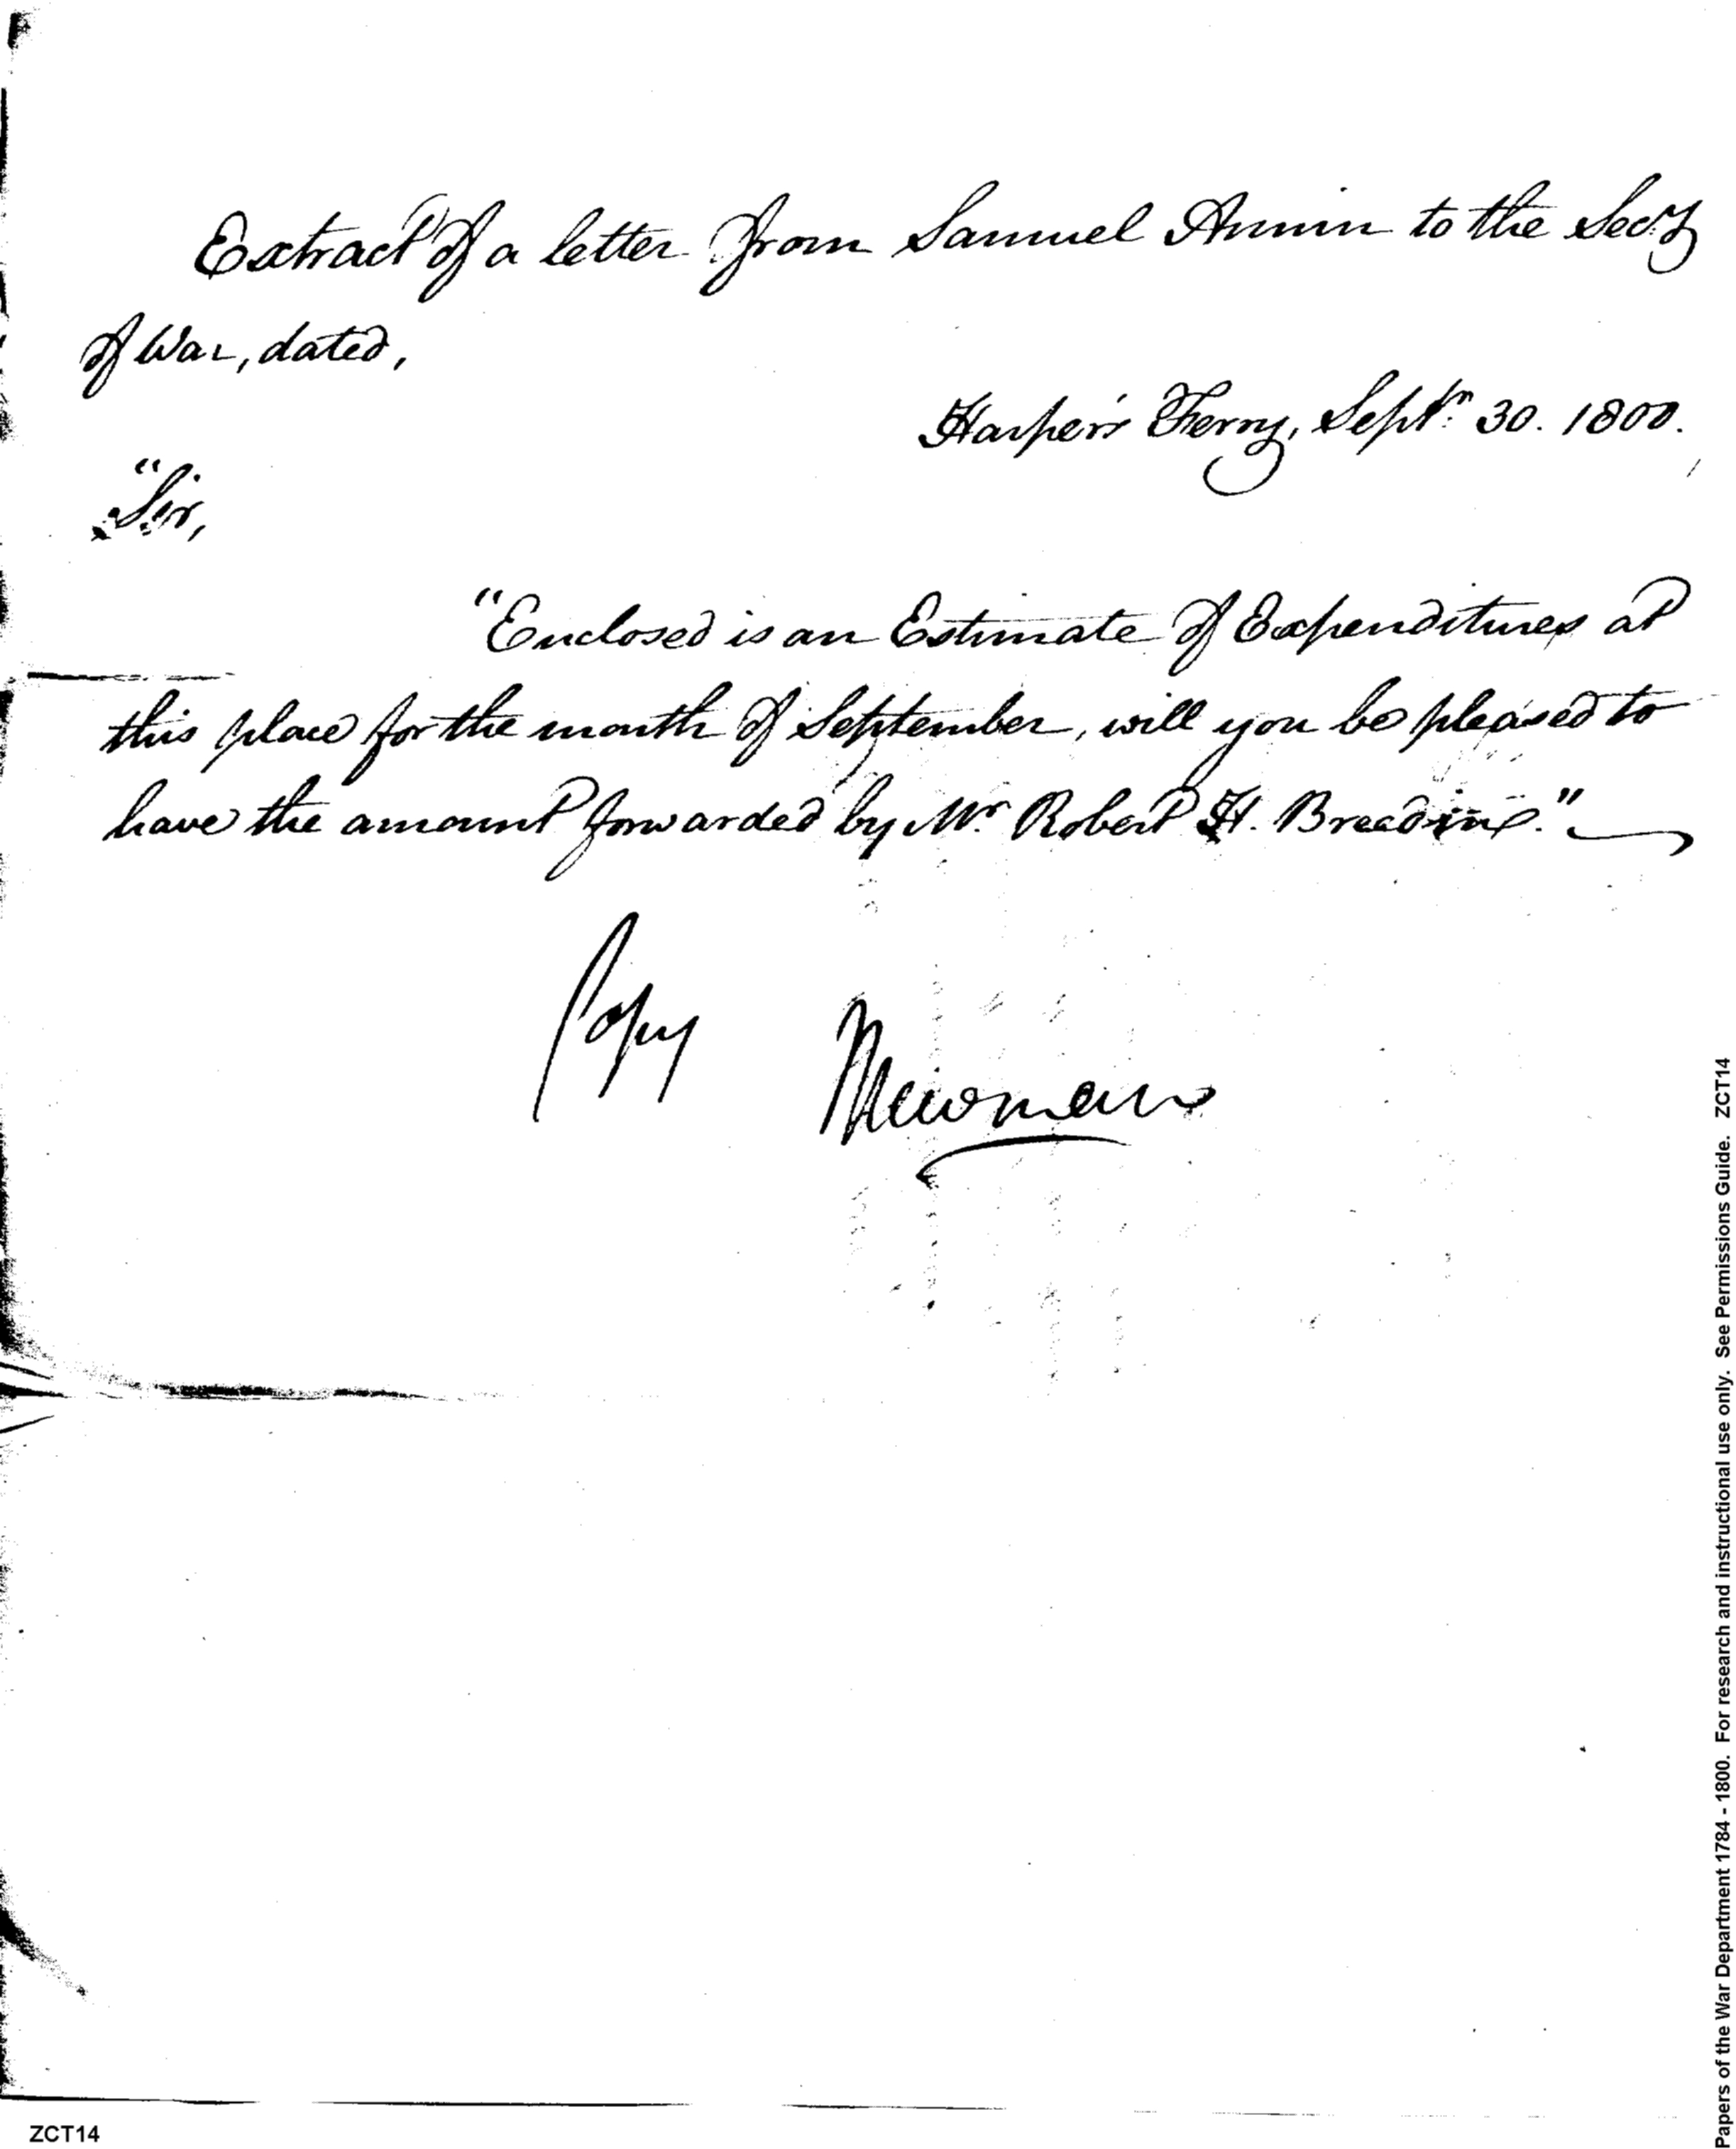 Extract of a letter from Samuel Annin to the Secy
of War, dated,
Harper's Ferry, Septr. 30. 1800.
"Sir,
"Enclosed is an Estimate of Expenditures at
this place for the month of September, will you be pleased to
have the amount forwarded by Mr. Robert H. Breading."
Copy
Newman
ZCT14
Papers of the War Department 1784 - 1800. For research and instructional use only. See Permissions Guide. ZCT14